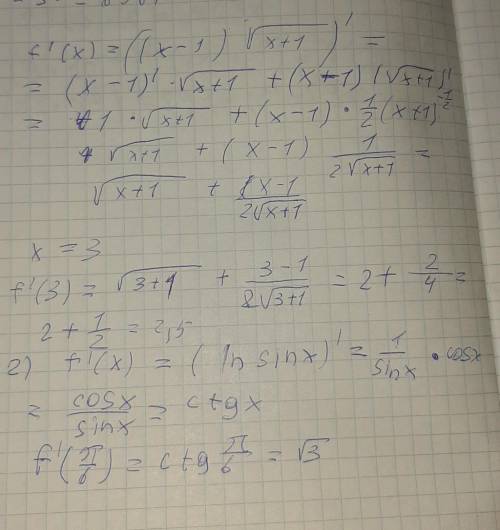 f'(x) = ((x-1) √(x+1))' =
= (x-1)' · √(x+1) + (x-1) (√(x+1))'
= 1 · √(x+1) + (x-1) · 1/2 (x+1)^(-1/2)
√(x+1) + (x-1) 1/(2√(x+1)) =
√(x+1) + (x-1)/(2√(x+1))
x = 3
f'(3) = √(3+1) + (3-1)/(2√(3+1)) = 2 + 2/4 =
2 + 1/2 = 2,5
2) f'(x) = (ln sinx)' = 1/sinx · cosx
= cosx/sinx = ctgx
f'(π/6) = ctg π/6 = √3